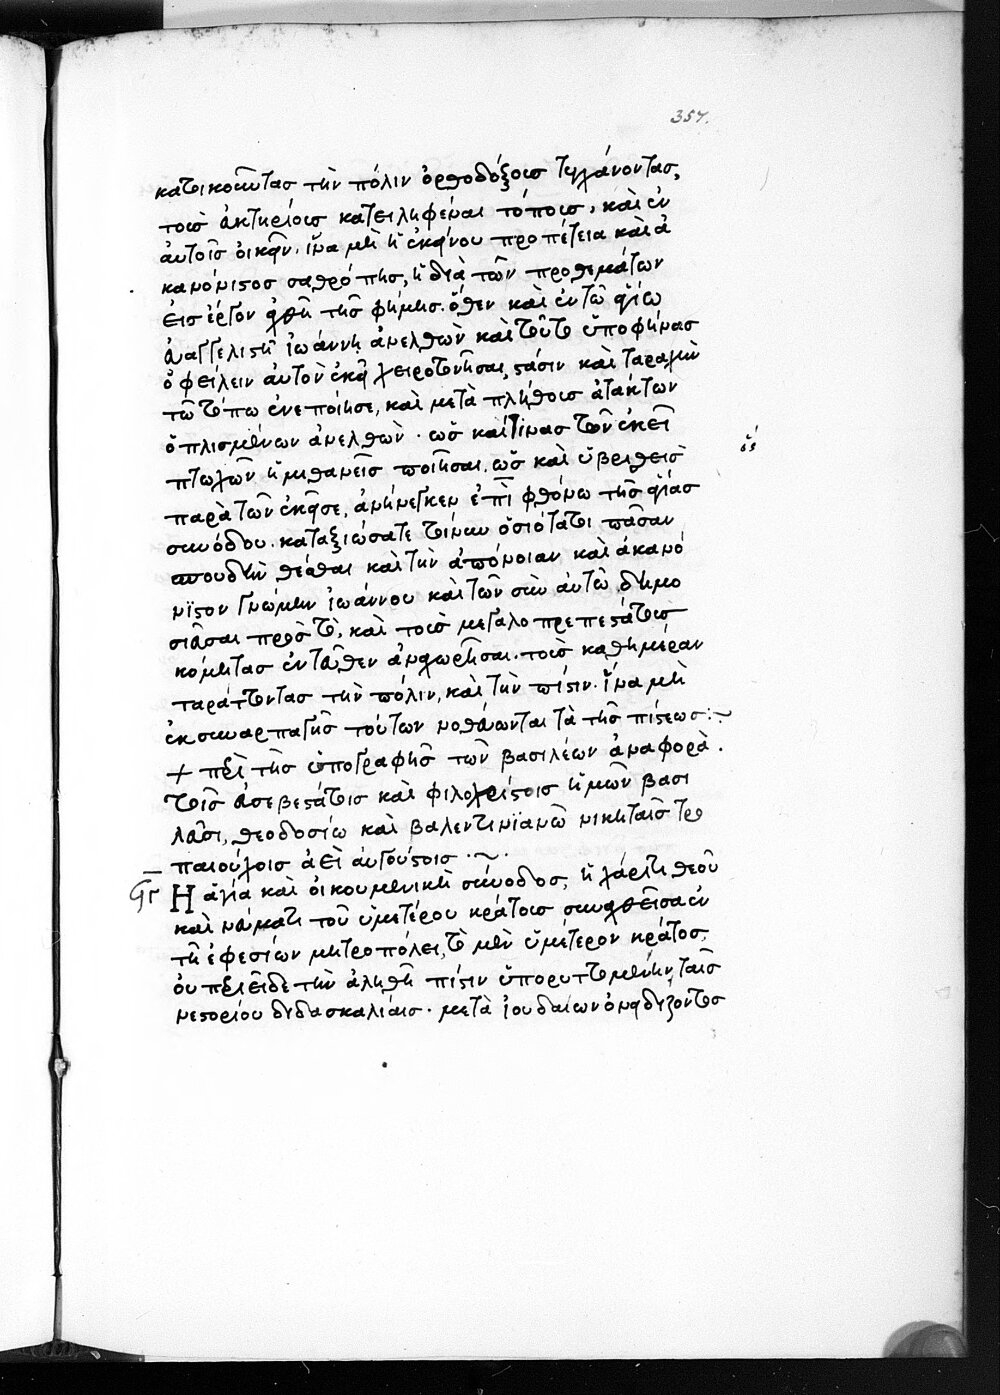 357.
κατοικοῦντας τὴν πόλιν ὀρθοδόξους τυγχάνοντας,
τοὺς εὐκτηρίους κατειληφέναι τόπους, καὶ ἐν
αὐτοῖς οἰκεῖν. ἵνα μὴ ἡ ἐκείνου προπέτεια καὶ ἀ
κανόνιστος σαθρότης, ἡ διὰ τῶν προθεμάτων
εἰς ἔργον ἀχθῇ τῆς φήμης. ὅθεν καὶ ἐν τῶ ἁγίω
εὐαγγελιστῆ ἰωάννη ἀνελθὼν καὶ τοῦτο ὑποφήνας
ὀφείλειν αὐτὸν ἐκεῖ χειροτονῆσαι, στάσιν καὶ ταραχὴν
τῶ τόπω ἐνεποίησε, καὶ μετὰ πλήθους ἀτάκτων
ὁπλισμένων ἀνελθὼν. ὡς καί τινας τῶν ἐκεῖ
πτωχῶν ἡμιθανεῖς ποιῆσαι. ὡς καὶ ὑβρισθεὶς
ὅς
παρὰ τῶν ἐκεῖσε, ἀνήνεγκεν ἐπὶ φθόνω τῆς ἁγίας
συνόδου. καταξιώσατε τοίνυν ὁσιότατοι πᾶσαν
σπουδὴν θέσθαι καὶ τὴν ἀπόνοιαν καὶ ἀκανό
νιστον γνώμην ἰωάννου καὶ τῶν σὺν αὐτῶ δημο
σιᾶσαι πρὸς τὸ, καὶ τοὺς μεγαλοπρεπεστάτους
κόμητας ἐντεῦθεν ἀναχωρῆσαι. τοὺς καθημέραν
ταράττοντας τὴν πόλιν, καὶ τὴν πίστιν. ἵνα μὴ
ἐκ συναρπαγῆς τούτων νοθεύωνται τὰ τῆς πίστεως :~
+ περὶ τῆς ὑπογραφῆς τῶν βασιλέων ἀναφορὰ.
τοῖς εὐσεβεστάτοις καὶ φιλοχρίστοις ἡμῶν βασι
λεῦσι, θεοδοσίω καὶ βαλεντινϊανῶ νικηταῖς τρο
παιούχοις ἀεὶ αὐγούστοις .~.
Ἡ ἁγία καὶ οἰκουμενικὴ σύνοδος, ἡ χάριτι θεοῦ
καὶ νεύματι τοῦ ὑμετέρου κράτους συναχθεῖσα ἐν
τῆ ἐφεσίων μητροπόλει, τὸ μὲν ὑμέτερον κράτος,
οὐ περιεῖδε τὴν ἀληθῆ πίστιν ὑπορυττομένην, ταῖς
νεστορίου διδασκαλίαις. μετὰ ἰουδαίων ὀνειδίζοντος